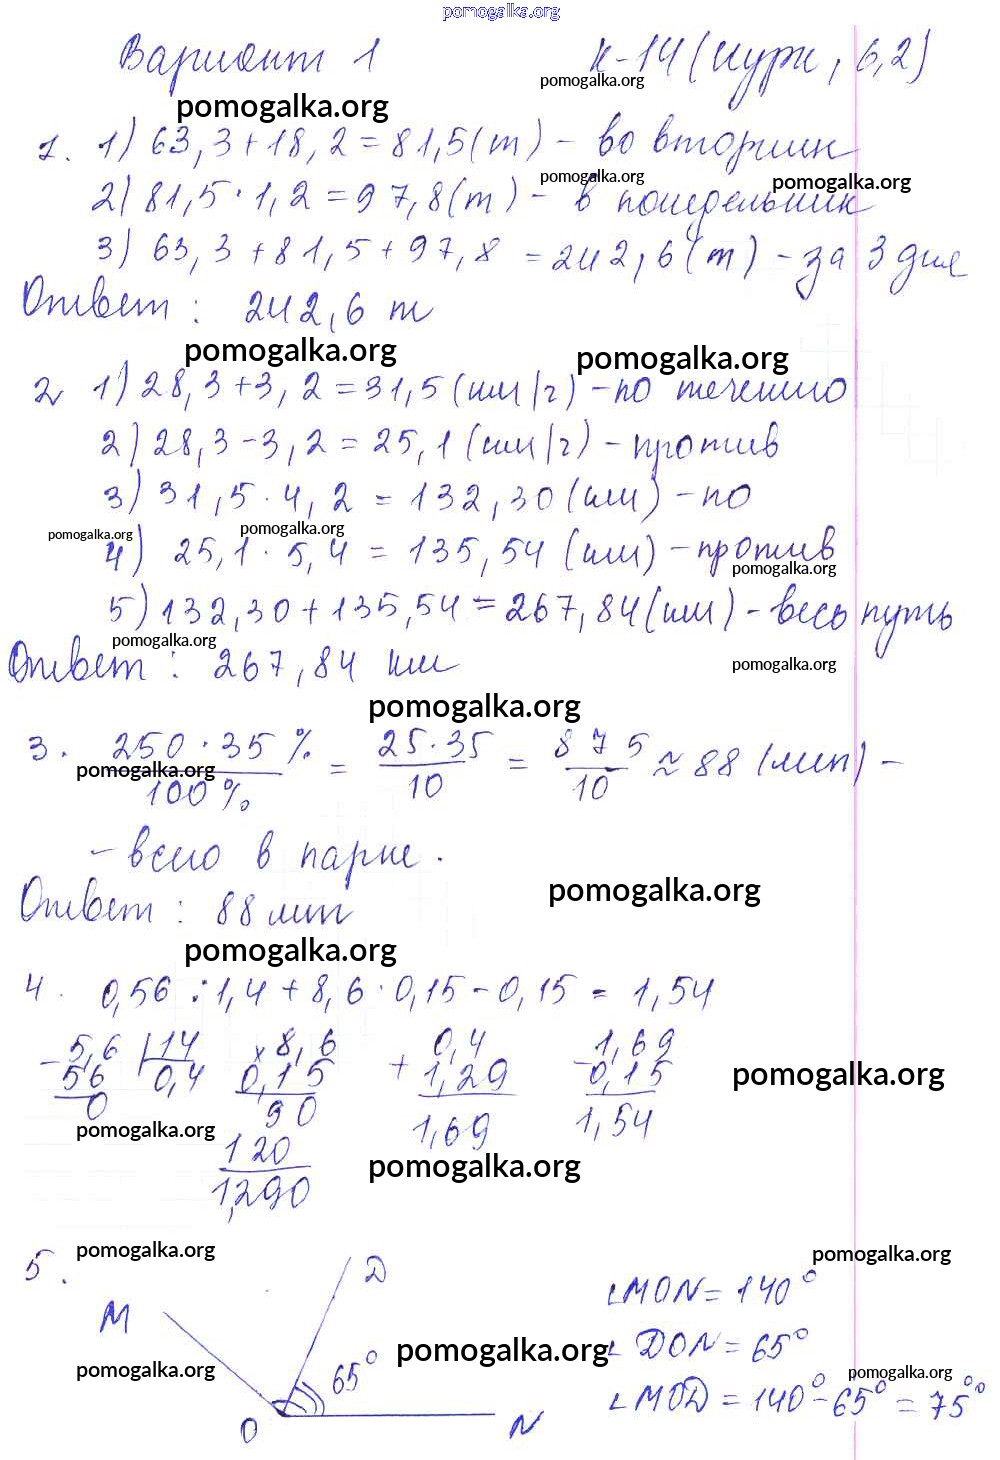 pomogalka.org
Вариант 1 К-14 (курн, 6,2)
pomogalka.org pomogalka.org
1. 1) 63,3+18,2=81,5(т) - во вторник
pomogalka.org pomogalka.org
2) 81,5·1,2=97,8(т) - в понедельник
3) 63,3+81,5+97,8 =242,6(т) - за 3 дня
Ответ: 242,6 т
pomogalka.org pomogalka.org
2 1) 28,3+3,2=31,5 (км/г) -по течению
2) 28,3-3,2=25,1 (км/г) - против
3) 31,5·4,2 = 132,30 (км) - по
pomogalka.org pomogalka.org
4) 25,1·5,4 = 135,54 (км) - против
pomogalka.org
5) 132,30+135,54=267,84(км) - весь путь
pomogalka.org pomogalka.org
Ответ: 267,84 км
pomogalka.org
3. 250·35% / 100% = 25·35 / 10 = 875 / 10 ≈ 88 (лип) -
pomogalka.org
- всего в парке.
pomogalka.org
Ответ: 88 лип
pomogalka.org
4. 0,56 : 1,4 + 8,6 · 0,15 - 0,15 = 1,54
- 5,6 | 14 × 8,6 + 0,4 - 1,69
56 0,4 0,15 1,29 0,15
pomogalka.org
0 90 1,69 1,54
pomogalka.org
120
pomogalka.org
1,290
5. pomogalka.org pomogalka.org
D
∠MON = 140°
M
pomogalka.org
∠DON = 65°
pomogalka.org 65° pomogalka.org
∠MOD = 140°-65° = 75°
O N